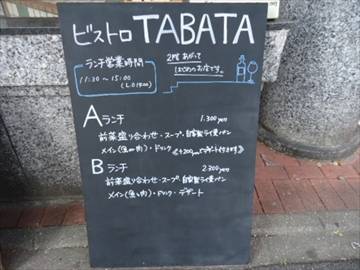 ビストロ TABATA
ランチ営業時間
11:30〜15:00
(L.O 14:00)
2階 あがって
はじめのお店です。
Aランチ 1.300yen
前菜盛り合わせ・スープ・自家製ライ麦パン
メイン(魚or肉)・ドリンク 《+200yenでデザート付きます》
Bランチ 2.300yen
前菜盛り合わせ・スープ・自家製ライ麦パン
メイン(魚と肉)・ドリンク・デザート